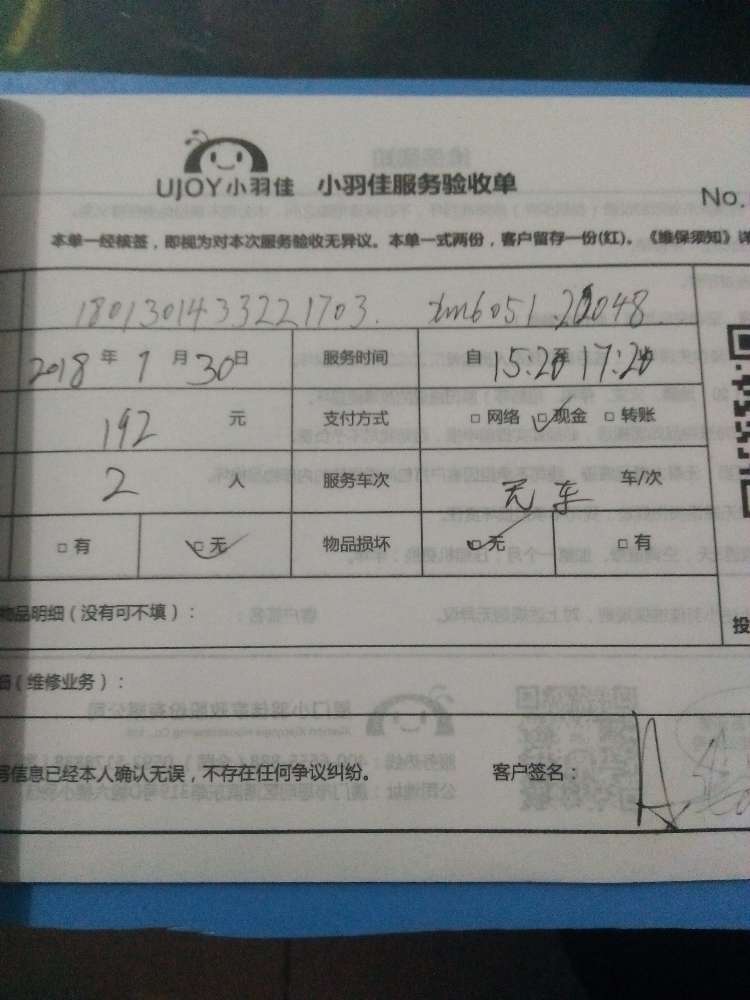 UJOY小羽佳 小羽佳服务验收单
No.
本单一经核签，即视为对本次服务验收无异议。本单一式两份，客户留存一份(红)。《维保须知》详
1801301433221703. xm6051
2018 年 1 月 30 日 服务时间 自 15:20 至 17:20
192 元 支付方式 □ 网络 □ 现金 □ 转账
2 人 服务车次 无车 车/次
□ 有 □ 无 物品损坏 □ 无 □ 有
物品明细（没有可不填）：
投
（维修业务）：
信息已经本人确认无误，不存在任何争议纠纷。 客户签名：